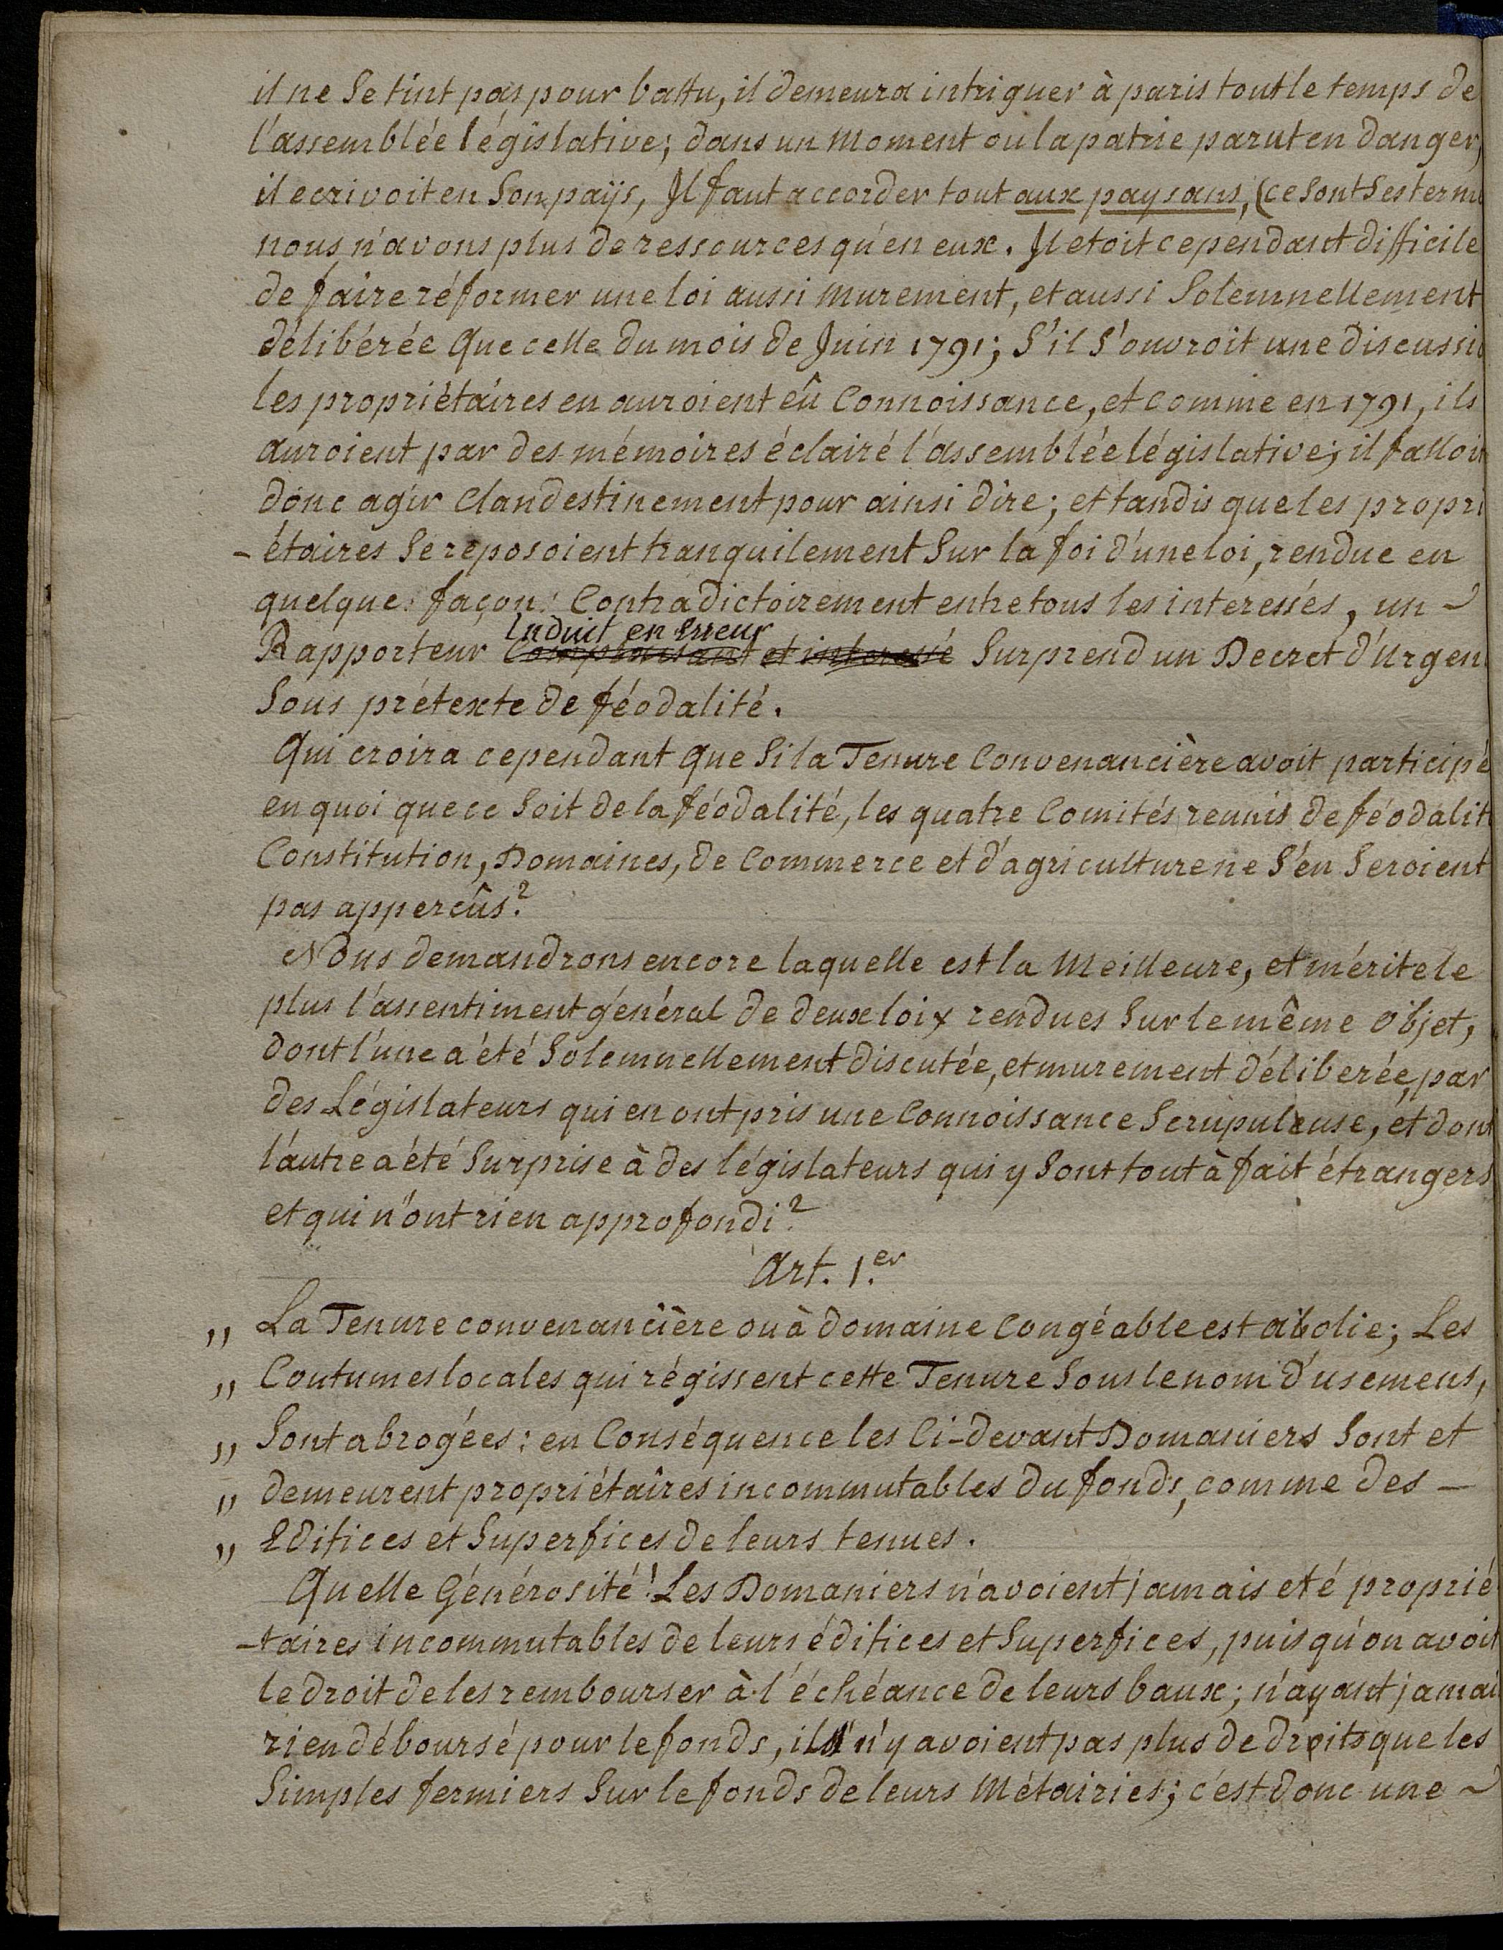 il ne se tint pas pour battu, il demeura intriguer à paris tout le temps de
l'assemblée législative; dans un moment ou la patrie parut en danger,
il ecrivoit en son païs, Il faut accorder tout aux paysans, (ce sont ses terme
nous n'avons plus de ressources qu'en eux. Il etoit cependant difficile
de faire réformer une loi aussi murement, et aussi solemnellement
délibérée que celle du mois de Juin 1791; s'il s'ouvroit une discussio
les propriétaires en auroient eû connoissance, et comme en 1791, ils
auroient par des mémoires éclairé l'assemblée législative; il falloit
donc agir clandestinement pour ainsi dire; et tandis que les propri
-étaires se reposoient tranquilement sur la foi d'une loi, rendue en
quelque façon contradictoirement entre tous les interessés, un ~
Induit en Erreur
Rapporteur complaisant et interessé surprend un Decret d'Urgen
sous prétexte de féodalité.
Qui croira cependant que si la Tenure convenancière avoit participé
en quoi que ce soit de la féodalité, les quatre comités reunis de féodalit
constitution, Domaines, de commerce et d'agriculture ne s'en seroient
pas apperçûs?
Nous demandrons encore laquelle est la meilleure, et mérite le
plus l'assentiment général de deux loix rendues sur le même objet,
dont l'une a été solemnellement discutée, et murement déliberée, par
des Législateurs qui en ont pris une connoissance scrupuleuse, et dont
l'autre a été surprise à des législateurs qui y sont tout à fait étrangers
et qui n'ont rien approfondi?
Art. 1.er
,, La Tenure convenancière ou à domaine congéable est abolie; Les
,, Coutumes locales qui régissent cette Tenure sous le nom d'usemens,
,, sont abrogées: en conséquence les ci-devant Domaniers sont et
,, demeurent propriétaires incommutables du fonds, comme des —
,, Edifices et superfices de leurs tenues.
Quelle Générosité! Les Domaniers n'avoient jamais eté proprié
-taires incommutables de leurs édifices et superfices, puis qu'on avoit
le droit de les rembourser à l'échéance de leurs baux; n'ayant jamai
rien déboursé pour le fonds, ils n'y avoient pas plus de droits que les
simples fermiers sur le fonds de leurs métairies; c'est donc une ~